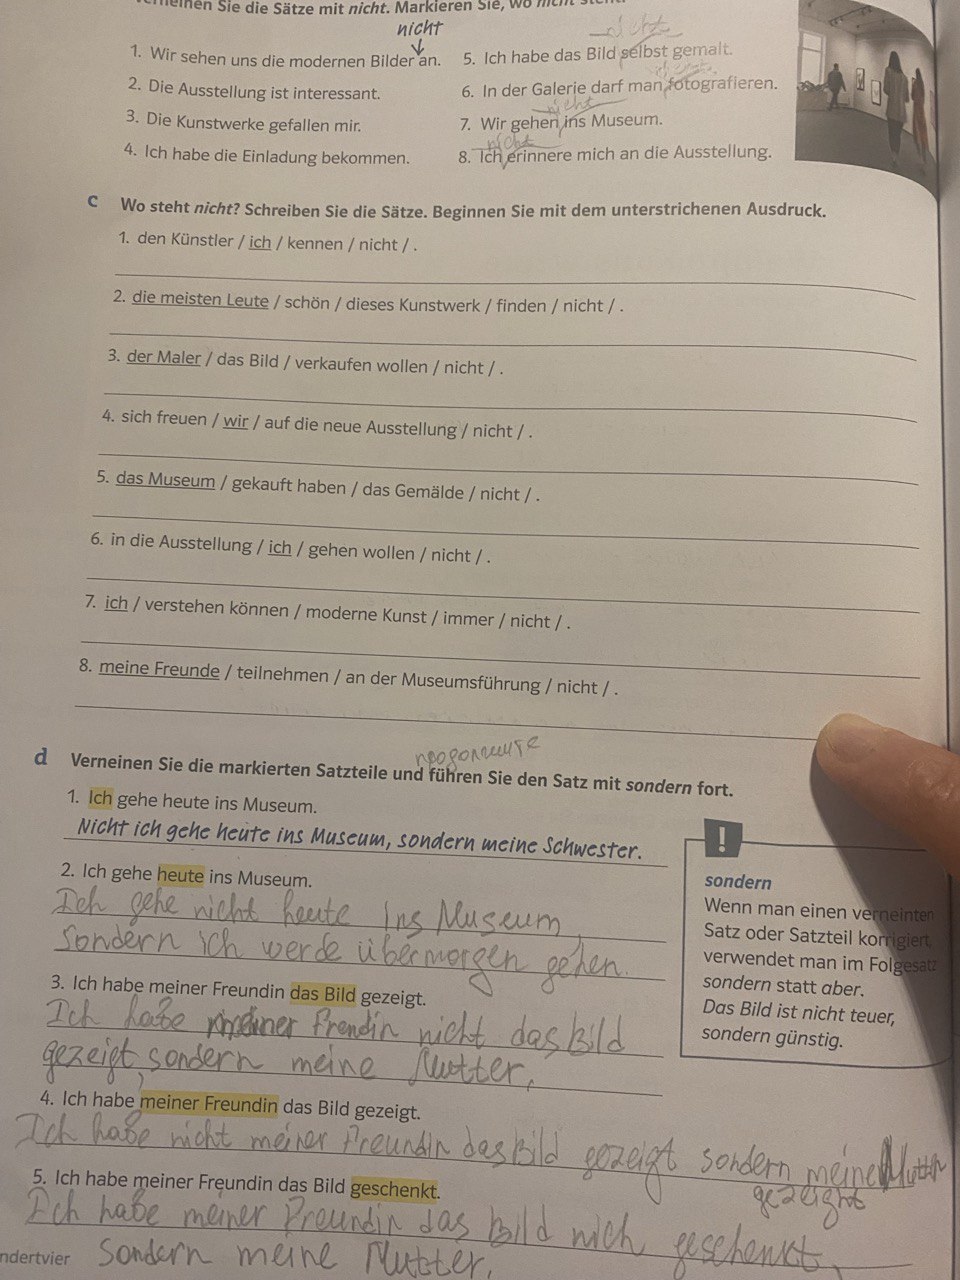 Sie die Sätze mit nicht. Markieren Sie, wo nicht
nicht
1. Wir sehen uns die modernen Bilder an.
2. Die Ausstellung ist interessant.
3. Die Kunstwerke gefallen mir.
4. Ich habe die Einladung bekommen.
nicht
5. Ich habe das Bild selbst gemalt.
nicht
6. In der Galerie darf man fotografieren.
nicht
7. Wir gehen ins Museum.
nicht
8. Ich erinnere mich an die Ausstellung.
c Wo steht nicht? Schreiben Sie die Sätze. Beginnen Sie mit dem unterstrichenen Ausdruck.
1. den Künstler / ich / kennen / nicht / .
2. die meisten Leute / schön / dieses Kunstwerk / finden / nicht / .
3. der Maler / das Bild / verkaufen wollen / nicht / .
4. sich freuen / wir / auf die neue Ausstellung / nicht / .
5. das Museum / gekauft haben / das Gemälde / nicht / .
6. in die Ausstellung / ich / gehen wollen / nicht / .
7. ich / verstehen können / moderne Kunst / immer / nicht / .
8. meine Freunde / teilnehmen / an der Museumsführung / nicht / .
d Verneinen Sie die markierten Satzteile und führen Sie den Satz mit sondern fort.
1. Ich gehe heute ins Museum.
Nicht ich gehe heute ins Museum, sondern meine Schwester.
2. Ich gehe heute ins Museum.
Ich gehe nicht heute ins Museum,
sondern ich werde übermorgen gehen.
3. Ich habe meiner Freundin das Bild gezeigt.
Ich habe meiner Frendin nicht das Bild
gezeigt, sondern meine Mutter.
4. Ich habe meiner Freundin das Bild gezeigt.
Ich habe nicht meiner Freundin das Bild gezeigt sondern meine Mutter
gezeight
5. Ich habe meiner Freundin das Bild geschenkt.
Ich habe meiner Freundin das Bild nich geschenkt,
sondern meine Mutter.
!
sondern
Wenn man einen verneinten
Satz oder Satzteil korrigiert,
verwendet man im Folgesatz
sondern statt aber.
Das Bild ist nicht teuer,
sondern günstig.
ndertvier